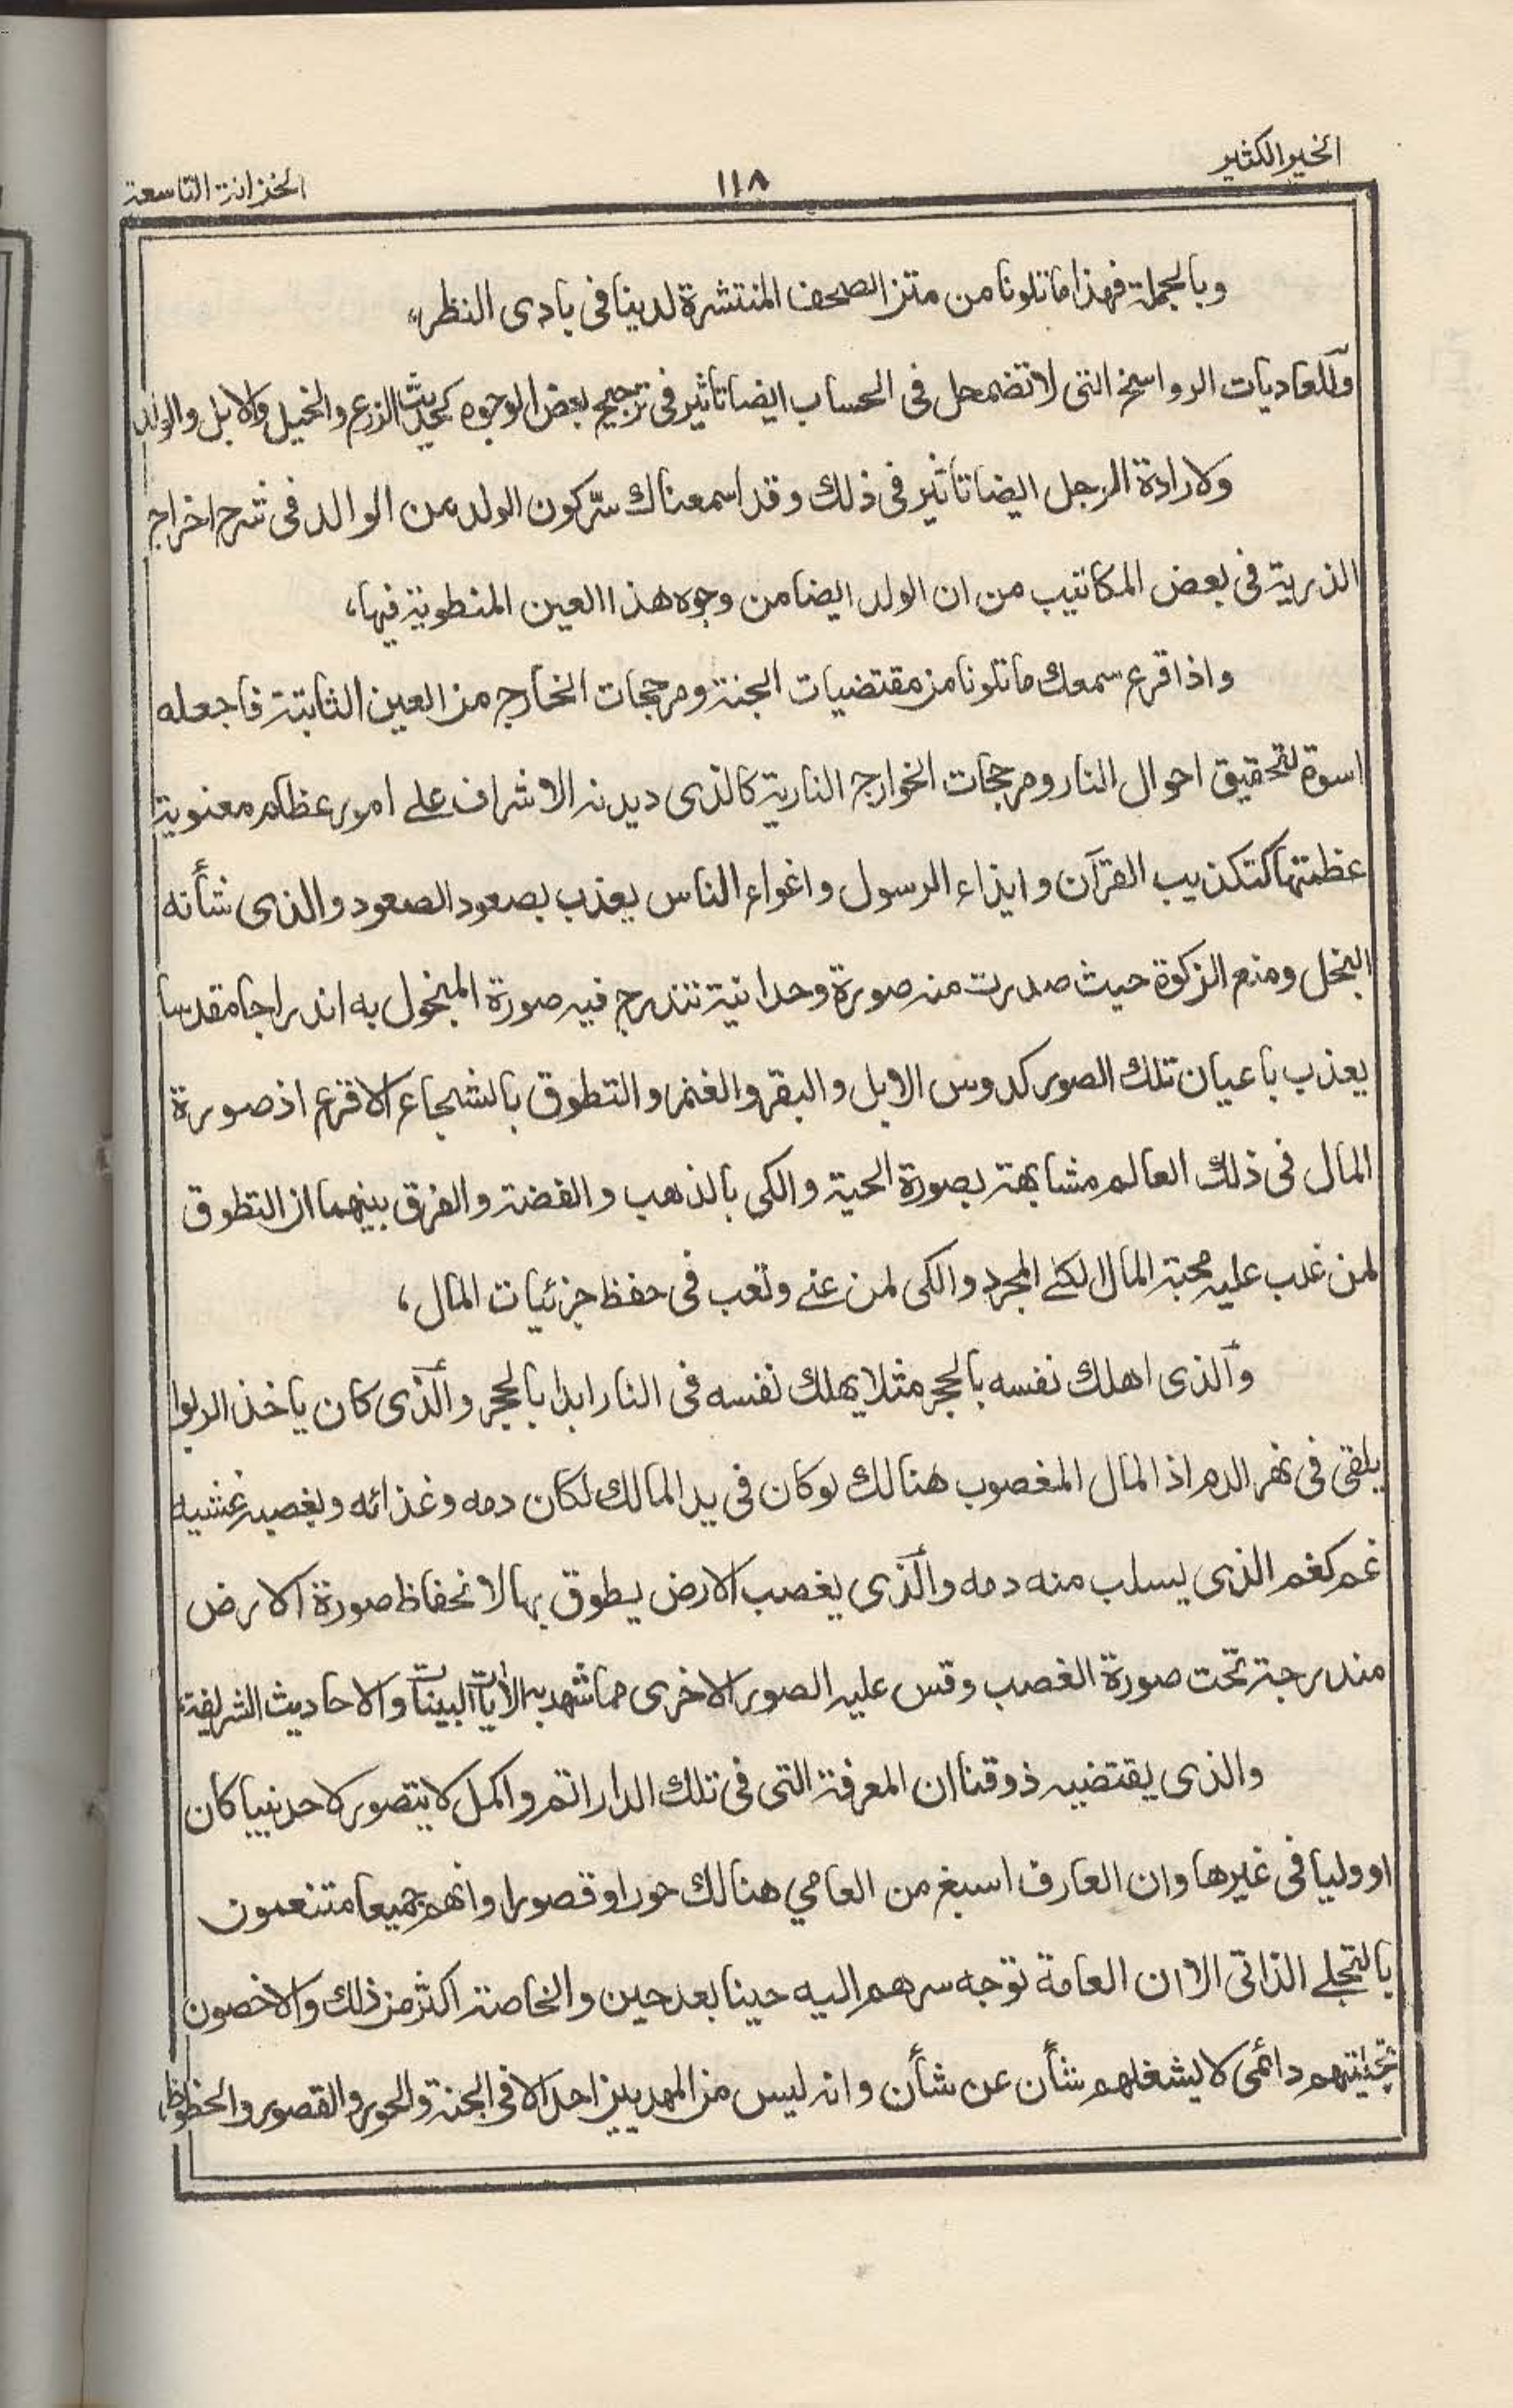 الخير الكثير
١١٨
الخزانة التاسعة
وبالجملة فهذا ما تلونا من متن الصحف المنتشرة لدينا فى بادى النظر،
وللعاديات الرواسخ التى لا تضمحل فى الحساب ايضا تاثير فى ترجيح بعض الوجوه كحديث الزرع والخيل والابل والولد
ولارادة الرجل ايضا تاثير فى ذلك وقد اسمعناك سّر كون الولد من الوالد فى شرح اخراج
الذرية فى بعض المكاتيب من ان الولد ايضا من وجوه هذا العين المنطوية فيها،
واذا قرع سمعك ما تلونا من مقتضيات الجنة ومرجحات الخارج من العين الثابتة فاجعله
اسوة لتحقيق احوال النار ومرجحات الخوارج النارية كالذى ديدنه الاشراف على امور عظام معنوية
عظمتها كتكذيب القرآن وايذاء الرسول واغواء الناس يعذب بصعود الصعود والذى شأنه
البخل ومنع الزكوة حيث صدرت منه صورة وحدانية تندرج فيه صورة المبخول به اندراجا مقدسا
يعذب باعيان تلك الصور كدوس الابل والبقر والغنم والتطوق بالشجاع الاقرع اذ صورة
المال فى ذلك العالم مشابهة بصورة الحية والكى بالذهب والفضة والفرق بينهما ان التطوق
لمن غلب عليه محبة المال الكلى المجرد والكى لمن عنى وتعب فى حفظ جزئيات المال،
وآلذى اهلك نفسه بالحجر مثلا يهلك نفسه فى النار ابدا بالحجر وآلذى كان ياخذ الربوا
يلقى فى نهر الدم اذ المال المغصوب هنالك لو كان فى يد المالك لكان دمه وغذائه وبغصبه غشيه
غم كغم الذى يسلب منه دمه وآلذى يغصب الارض يطوق بها لانحفاظ صورة الارض
مندرجة تحت صورة الغصب وقس عليه الصور الاخرى مما شهد به الآيات البينات والاحاديث الشريفة،
والذى يقتضيه ذوقنا ان المعرفة التى فى تلك الدار اتم واكمل لا يتصور لاحد نبيا كان
او وليا فى غيرها وان العارف اسبغ من العامي هنالك حورا وقصورا وانهم جميعا متنعمون
بالتجلى الذاتى الا ان العامة توجه سرهم اليه حينا بعد حين والخاصة اكثر من ذلك والاخصون
دائمى لا يشغلهم شأن عن شأن وانه ليس من المهديين احد الا فى الجنة والحور والقصور والحظوظ،